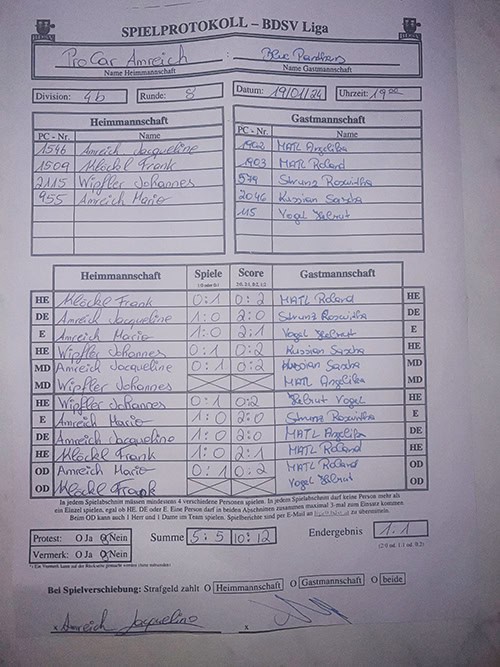 SPIELPROTOKOLL – BDSV Liga
ProCar Amreich : Blue Panthers
Name Heimmannschaft Name Gastmannschaft
Division: 4b Runde: 8 Datum: 19/01/24 Uhrzeit: 19 00
Heimmannschaft Gastmannschaft
PC - Nr. Name PC - Nr. Name
1546 Amreich Jacqueline 1902 MATL Angelika
1509 Klöckl Frank 1903 MATL Roland
2115 Wipfler Johannes 579 Strunz Roswitha
955 Amreich Mario 2046 Kussian Sascha
115 Vogel Helmut
Heimmannschaft Spiele Score Gastmannschaft
(1:0 oder 0:1) (2:0, 2:1, 0:2, 1:2)
HE Klöckl Frank 0:1 0:2 MATL Roland HE
DE Amreich Jacqueline 1:0 2:0 Strunz Roswitha DE
E Amreich Mario 1:0 2:1 Vogel Helmut E
HE Wipfler Johannes 0:1 0:2 Kussian Sascha HE
MD Amreich Jacqueline 0:1 0:2 Kussian Sascha MD
MD Wipfler Johannes MATL Angelika MD
HE Wipfler Johannes 0:1 0:2 Helmut Vogel HE
E Amreich Mario 1:0 2:0 Strunz Roswitha E
DE Amreich Jacqueline 1:0 2:0 MATL Angelika DE
HE Klöckl Frank 1:0 2:1 MATL Roland HE
OD Amreich Mario 0:1 0:2 MATL Roland OD
OD Klöckl Frank Vogel Helmut OD
In jedem Spielabschnitt müssen mindestens 4 verschiedene Personen spielen. In jedem Spielabschnitt darf keine Person mehr als
ein Einzel spielen, egal ob HE, DE oder E. Eine Person darf in beiden Abschnitten zusammen maximal 3-mal zum Einsatz kommen
Beim OD kann auch 1 Herr und 1 Dame im Team spielen. Spielberichte sind per E-Mail an zu übermitteln.
Protest: O Ja O Nein Summe 5:5 10:12 Endergebnis 1:1
Vermerk: O Ja O Nein (2:0 od. 1:1 od. 0:2)
*) Ein Vermerk kann auf der Rückseite gemacht werden
Bei Spielverschiebung: Strafgeld zahlt O Heimmannschaft O Gastmannschaft O beide
x Amreich Jacqueline x